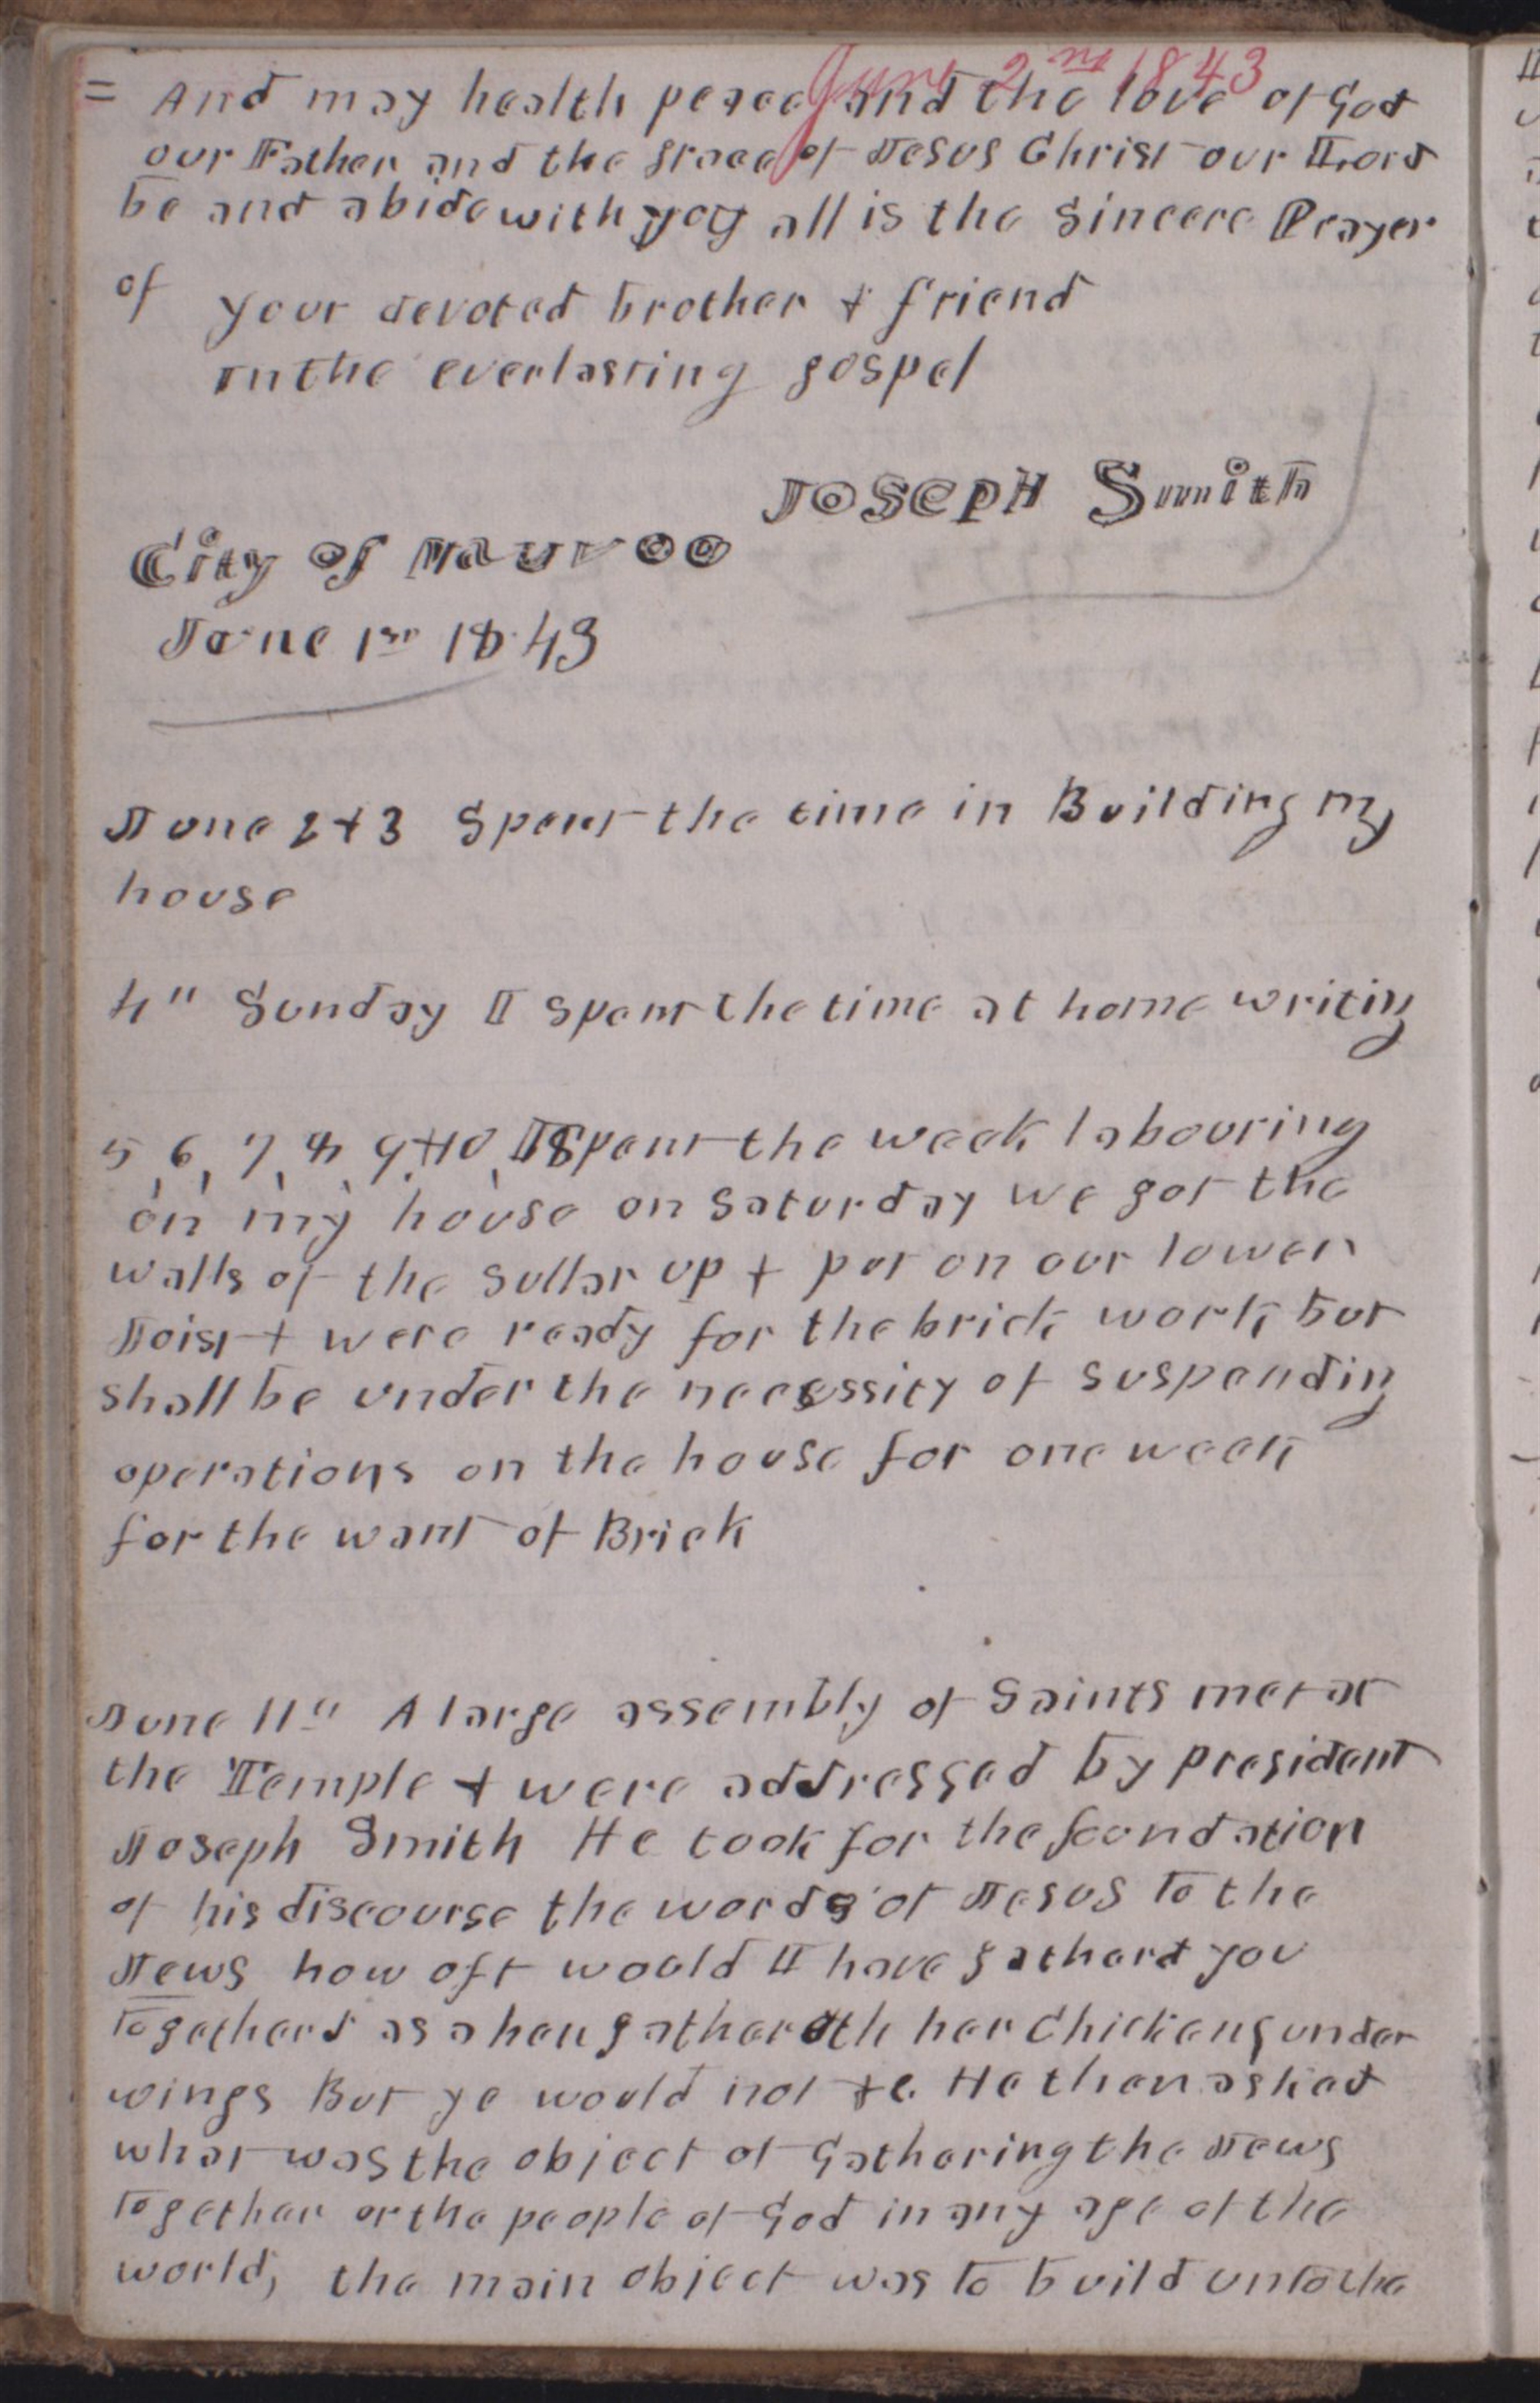 June 2nd 1843
= And may health peace and the love of God
our Father and the grace of Jesus Christ our Lord
be and abide with you all is the sincere Prayer
of your devoted brother & friend
in the everlasting gospel
Joseph Smith
City of Nauvoo
June 1st 1843
June 2 & 3 Spent the time in Building my
house
4" Sunday I spent the time at home writing
5, 6, 7, 8, 9, & 10, I Spent the week labouring
on my house on Saturday we got the
walls of the sullar up & put on our lower
Joist & were ready for the brick work but
shall be under the necessity of suspending
operations on the house for one week
for the want of Brick
June 11" A large assembly of Saints met at
the Temple & were addressed by president
Joseph Smith He took for the foundation
of his discourse the words of Jesus to the
Jews how oft would I have gatherd you
togetherd as a hen gathereth her Chickens under
wings But ye would not &c. He then asked
what was the object of Gathering the Jews
together or the people of God in any age of the
world, the main object was to build unto the